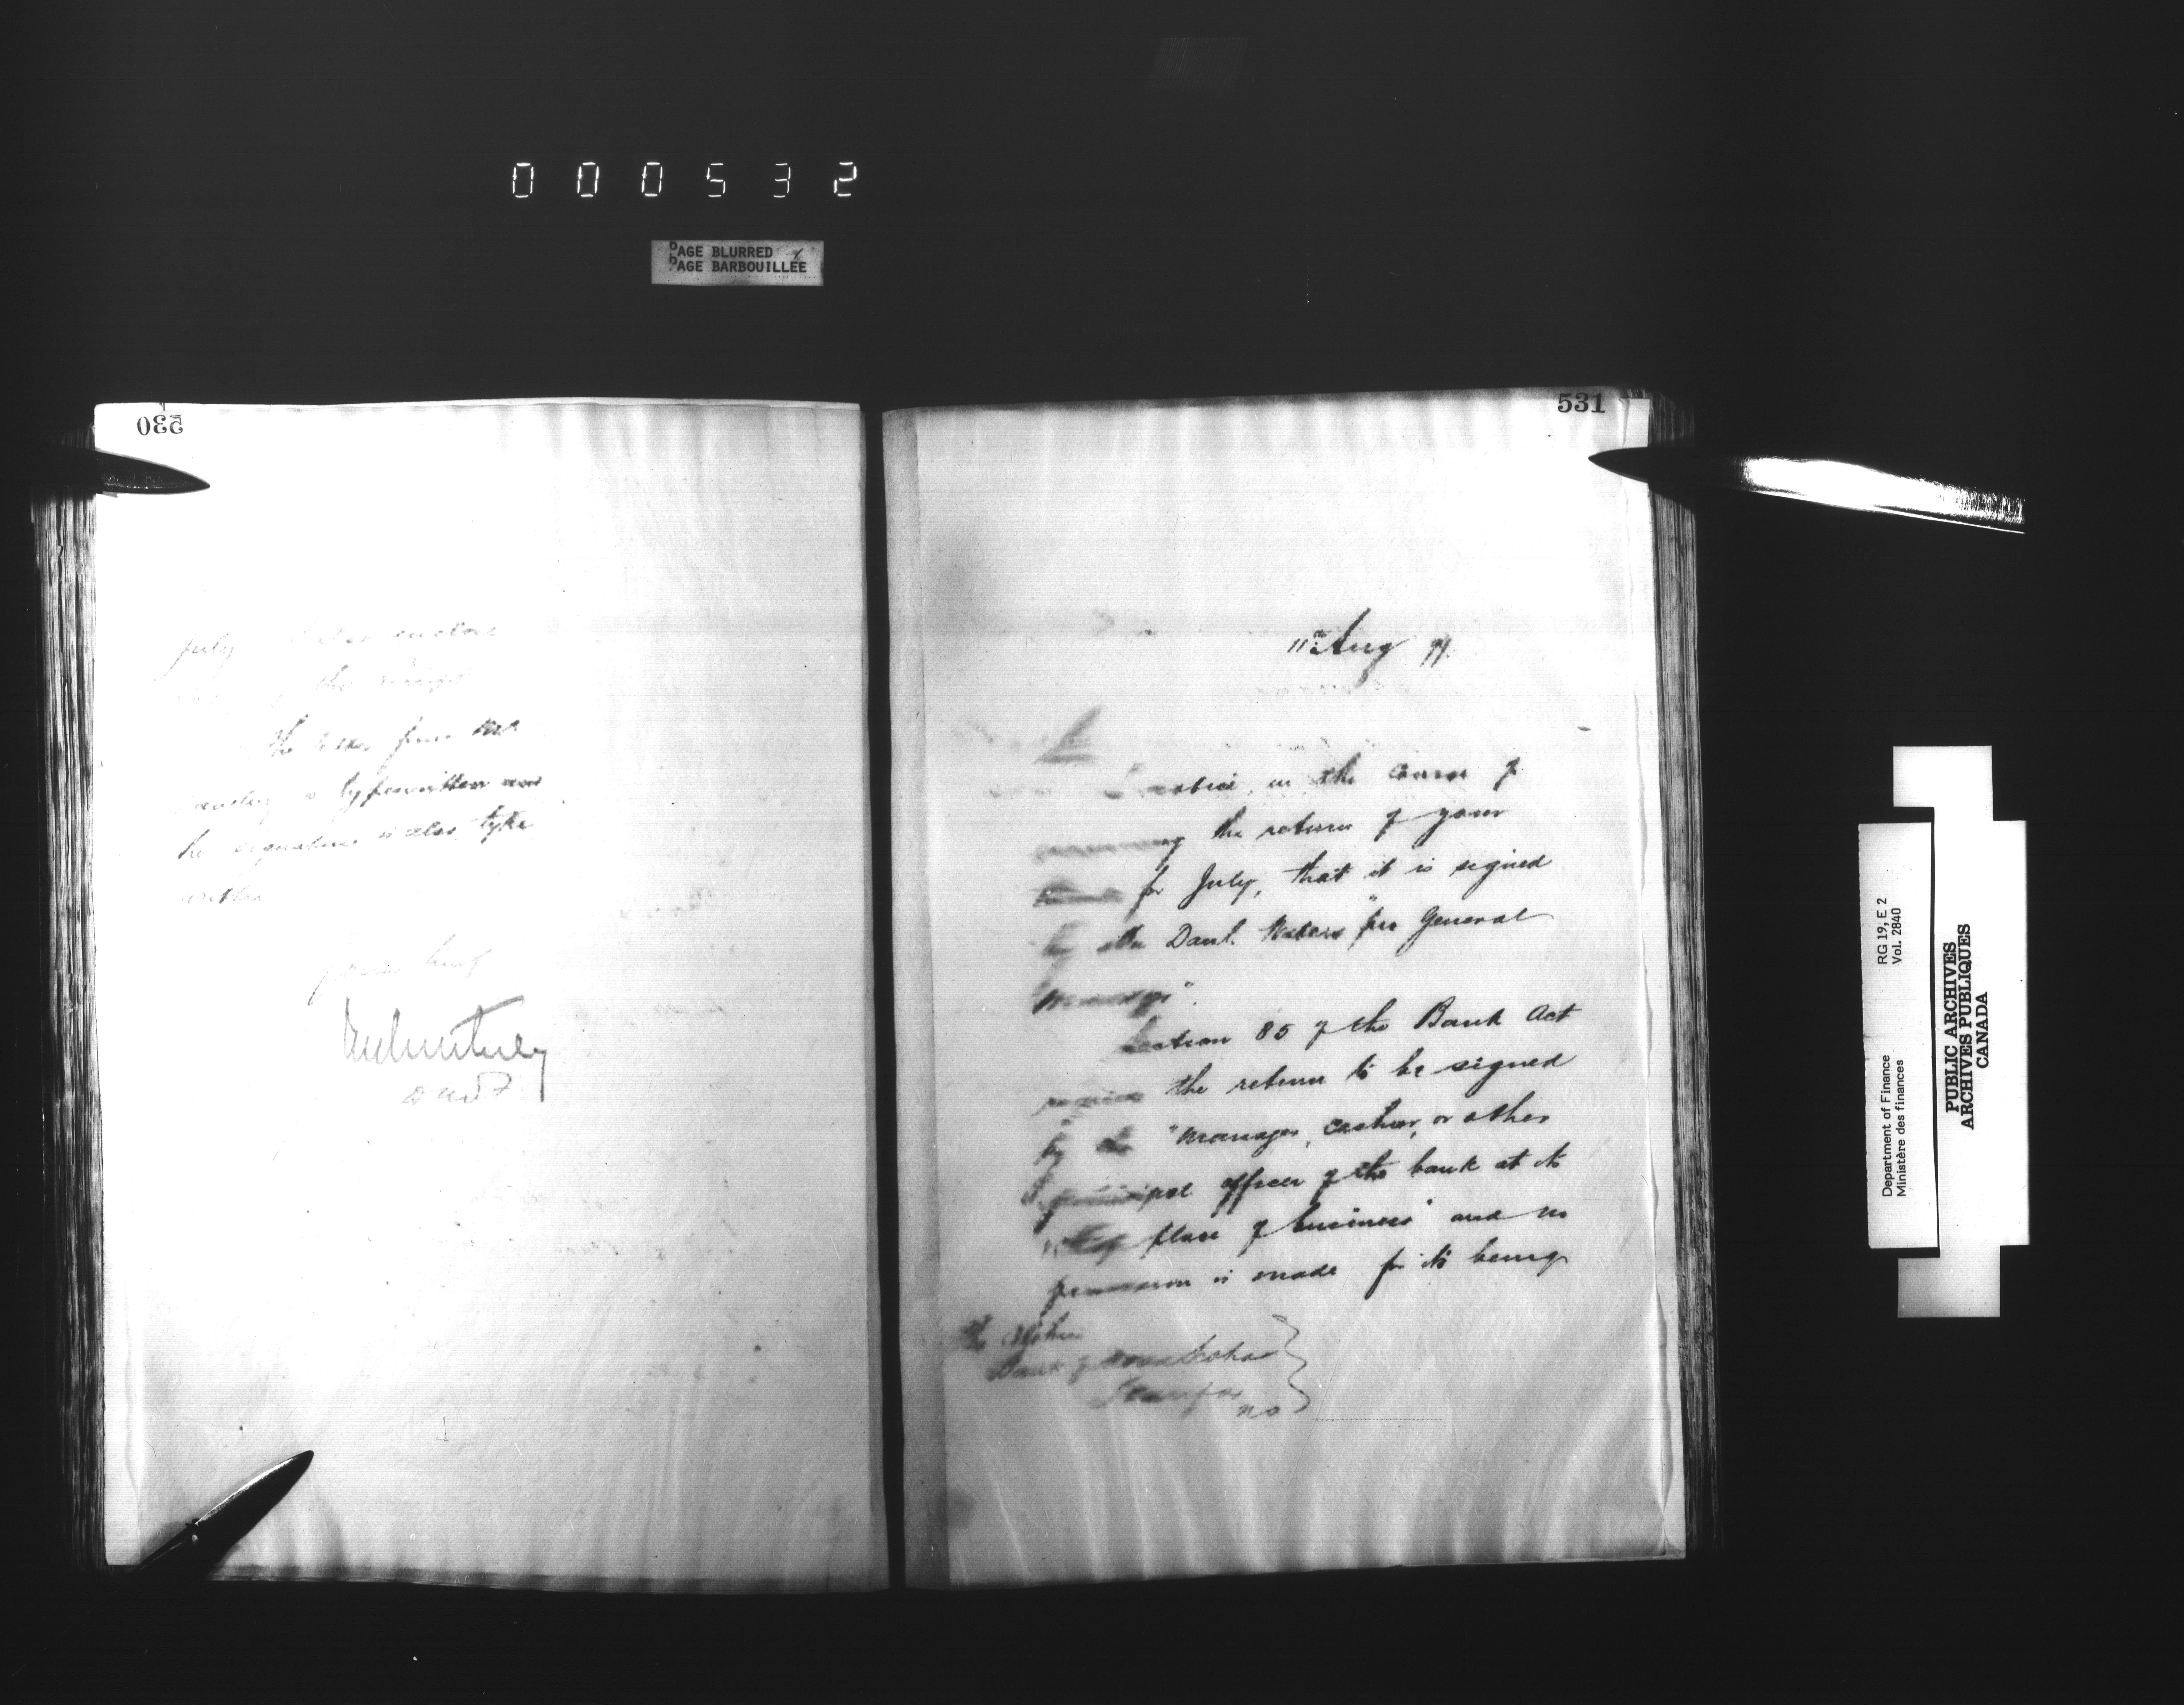 000532
PAGE BLURRED
PAGE BARBOUILLÉE
530
July enclose
the
the letter from Mr
is typewritten and
his signature is also type
written
yours truly
J M Courtney
D M F
531
11th Aug 91.
Sir
I notice, in the course of
examining the return of your
bank for July, that it is signed
by Mr Danl. Waters "pro General
Manager".
Section 85 of the Bank Act
requires the return to be signed
by the "manager, cashier, or other
principal officer of the bank at its
chief place of business" and no
provision is made for its being
The Cashier
Bank of Nova Scotia
Halifax
NS
Department of Finance
Ministère des finances
RG 19, E 2
Vol. 2840
PUBLIC ARCHIVES
ARCHIVES PUBLIQUES
CANADA